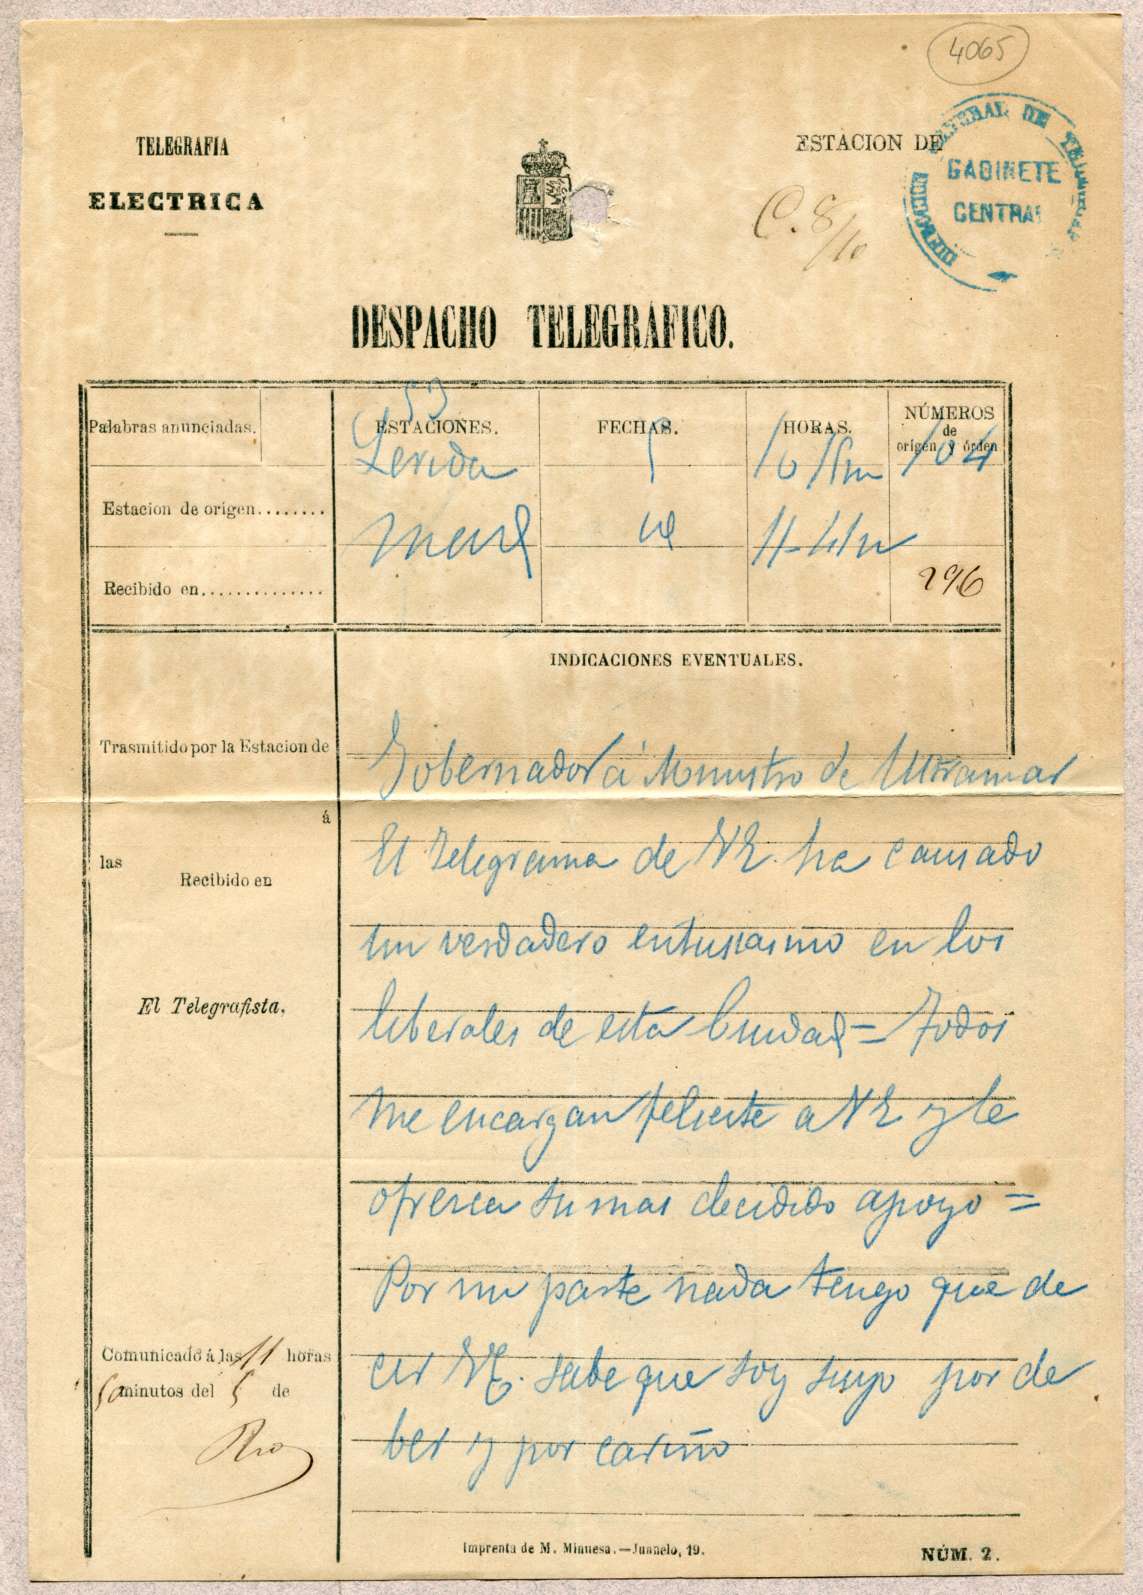 4065
TELEGRAFIA
ELECTRICA
ESTACION DE
GABINETE
CENTRAL
C. 8/10
DESPACHO TELEGRÁFICO.
53
Palabras anunciadas.
ESTACIONES.
FECHAS.
HORAS.
NÚMEROS
de
origen y órden
Lerida 5 104
Estacion de origen........
11-41n
Recibido en..............
296
INDICACIONES EVENTUALES.
Trasmitido por la Estacion de
Gobernador á Ministro de Ultramar
á
las
El telegrama de VE. ha causado
Recibido en
un verdadero entusiasmo en los
El Telegrafista.
liberales de esta Ciudad = Todos
me encargan felicite a VE y le
ofrezca su mas decidido apoyo =
Por mi parte nada tengo que de
Comunicado á las 11 horas
cir VE. sabe que soy suyo por de
50 minutos del 5 de
ber y por cariño
Rio
Imprenta de M. Minuesa.—Juanelo, 19.
NÚM. 2.